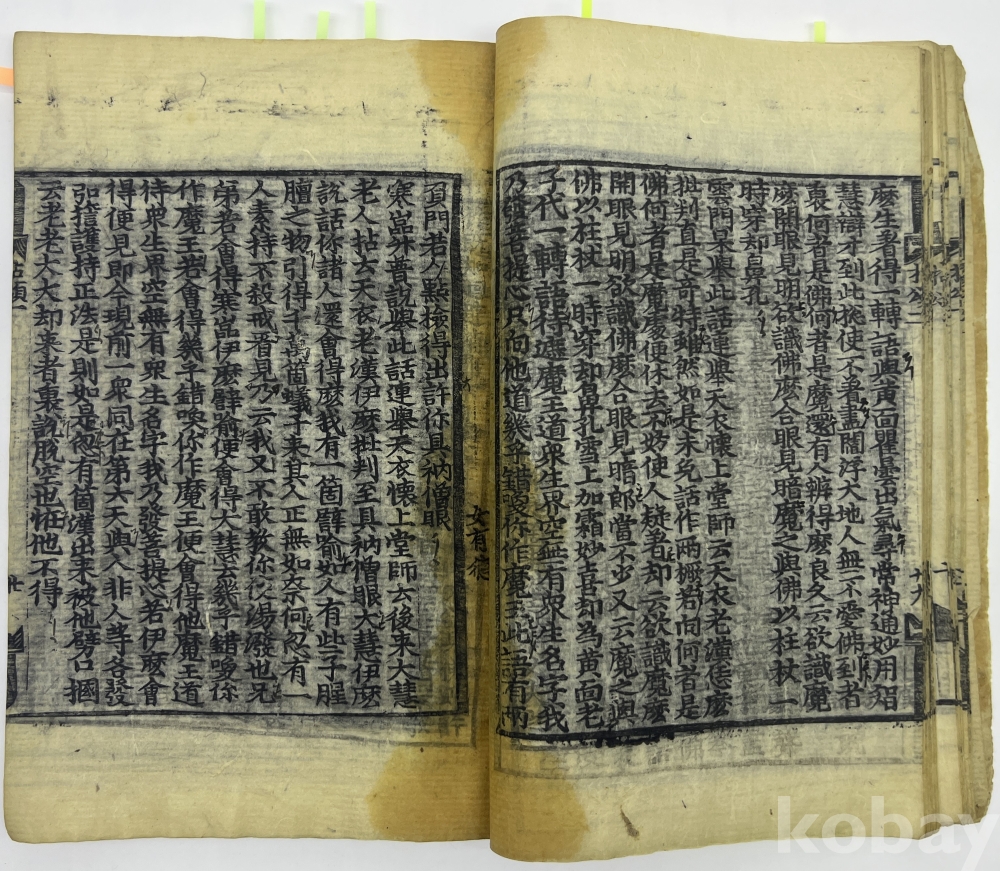 麽生者得一轉語與黃面瞿曇出氣尋常神通妙用智
慧辯才到此揔使不着盡閻浮大地人無不愛佛到者
裏何者是佛何者是魔還有人辨得麽良久云欲識魔
麽開眼見明欲識佛麽合眼見暗魔之與佛以柱杖一
時穿却鼻孔
雲門杲擧此話連擧天衣懷上堂師云天衣老漢恁麽
批判直是奇特雖然如是未免話作兩橛若向何者是
佛何者是魔處便休去不妨使人疑着却云欲識魔麽
開眼見明欲識佛麽合眼見暗郎當不少又云魔之與
佛以柱杖一時穿却鼻孔雪上加霜妙喜却爲黃面老
子代一轉語待遮魔王道衆生界空無有衆生名字我
乃發菩提心只向他道幾乎錯喚你作魔王此語有兩
負門若人點撿得出許你具衲僧眼
寒嵓升普說擧此話連擧天衣懷上堂師云後來大慧
老人拈云天衣老漢伊麽批判至具衲僧眼大慧伊麽
說話你諸人還會得麽我有一箇譬喩如人有些子腥
膻之物引得千萬箇蟻子來其人正無如奈何忽有一
人素持不殺戒者見乃云我又不敢教你湯潑也兄
弟若會得寒嵓伊麽譬喩便會得大慧云幾乎錯喚你
作魔王若會得幾乎錯喚你作魔王便會得他魔王道
待衆生界空無有衆生名字我乃發菩提心若伊麽會
得便見即今現前一衆同在第六天與人非人等各發
弘㨾護持正法是則如是忽有箇漢出來被他劈口摑
云老老大大却來者裏說脫空也恠他不得
女有狼
拈頌一
卄
十九
kobay